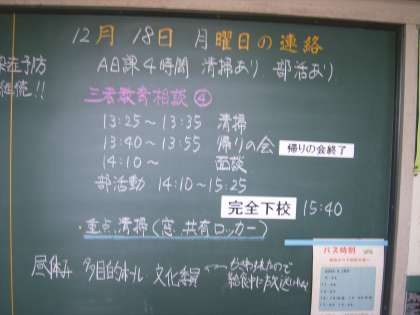 12月 18日 月曜日の連絡
予防
継続!!
A日課4時間 清掃あり 部活あり
三者教育相談 ④
13:25～13:35 清掃
13:40～13:55 帰りの会 帰りの会終了
14:10～ 面談
部活動 14:10～15:25
完全下校 15:40
・重点清掃(窓、共有ロッカー)
昼休み 多目的ホール 文化委員
バス時刻